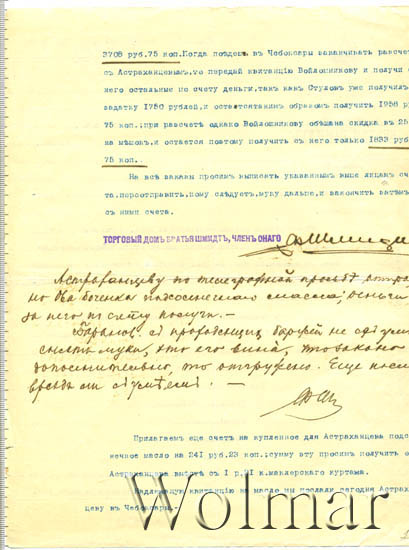 3708 руб.75 коп.Когда поѣдемъ въ Чебоксары заканчивать разсчет
съ Астраханцевымъ,то передай квитанцію Войлошникову и получи с
него остальные по счету деньги,такъ какъ Стуловъ уже получилъ
задатку 1750 рублей,и остается такимъ образомъ получить 1958 р
75 коп.;при разсчетѣ однако Войлошникову обѣщана скидка въ 25
на мѣшокъ,и остается поэтому получить съ него только 1833 руб
75 коп.
На всѣ заказы просимъ выписать указаннымъ выше лицамъ сче
та,переотправить,кому слѣдуетъ,муку дальше,и закончить затѣм
съ ними счета.
ТОРГОВЫЙ ДОМЪ БРАТЬЯ ШМИДТЪ, ЧЛЕНЪ ОНАГО
Астраханцеву по телеграфной просьбѣ отпра
но два боченка подсолнечнаго масла; деньги
за него по счету получи. —
съ проходящихъ баржей не
муки, это его вина,
дополнительно, то отгружено. Еще
Прилагаемъ еще счетъ на купленное для Астраханцева подс
нечное масло на 241 руб.23 коп.;сумму эту просимъ получить о
Астраханцева вмѣстѣ съ 1 р.21 к.маклерскаго куртажа.
Надлежащую квитанцію на масло мы послали сегодня Астрах
цеву въ Чебоксары.-
Wolmar